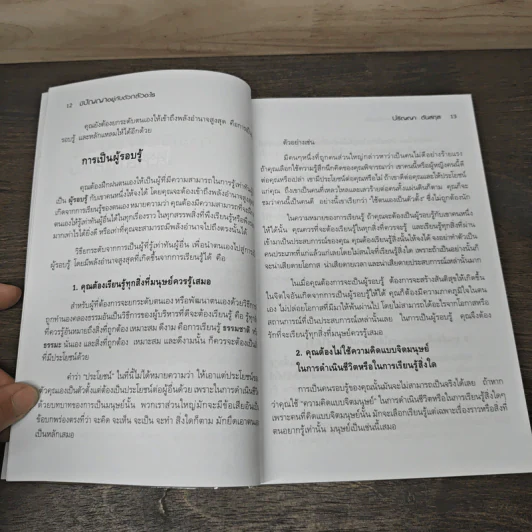 12 มีปัญญาอยู่กับตัวกลัวอะไร
คุณยังต้องยกระดับตนเองให้เข้าถึงพลังอำนาจสูงสุด คือการเป็น
รอบรู้ และหลักแหลมให้ได้อีกด้วย
การเป็นผู้รอบรู้
คุณต้องฝึกฝนตนเองให้เป็นผู้ที่มีความสามารถในการรู้เท่าทัน
เป็น ผู้รอบรู้ กับเขาคนหนึ่งให้จงได้ โดยคุณจะต้องเข้าถึงพลังอำนาจสูงสุด
เกิดจากการเรียนรู้ของตนเอง หมายความว่า คุณต้องมีความสามารถที่จะ
รู้ได้เท่ากับผู้อื่นได้ในทุกเรื่องราว ในทุกสรรพสิ่งที่พึงเรียนรู้หรือ
มากเท่าไรได้ยิ่งดี หรือเท่าที่คุณจะสามารถมีพลังอำนาจไปถึงตรงนั้นได้
วิธียกระดับจากการเป็นผู้ที่รู้เท่าทันผู้อื่น เพื่อนำตนเองไปสู่การ
ผู้รอบรู้ โดยมีพลังอำนาจสูงสุดที่เกิดขึ้นจากการเรียนรู้ได้ คือ
1. คุณต้องเรียนรู้ทุกสิ่งที่มนุษย์ควรรู้เสมอ
สำหรับผู้ที่ต้องการจะยกระดับตนเอง หรือพัฒนาตนเองด้วยวิธีการ
ถูกทำนองคลองธรรมอันเป็นวิธีการของผู้บริหารที่ดีจะต้องเรียนรู้ คือ รู้ทุกสิ่ง
ที่ควรรู้อันหมายถึงสิ่งที่ถูกต้อง เหมาะสม ดีงาม คือการเรียนรู้ ธรรมชาติ
ธรรมะ นั่นเอง และสิ่งที่ถูกต้อง เหมาะสม และดีงามนั้น ก็ควรจะต้องเป็น
ที่มีประโยชน์ด้วย
คำว่า 'ประโยชน์' ในที่นี้ไม่ได้หมายความว่า ให้เอาแต่ประโยชน์
ตัวคุณเองเป็นตัวตั้งแต่ต้องเป็นประโยชน์ต่อผู้อื่นด้วย เพราะในการดำเนินชีวิต
ด้วยบทบาทของการเป็นมนุษย์นั้น พวกเราส่วนใหญ่มักจะมีข้อเสีย
ข้อบกพร่องตรงที่ว่า จะคิด จะเห็น จะเป็น จะทำ สิ่งใดก็ตาม มักยึดเอาตนเอง
เป็นหลักเสมอ
ปรัชญา ตันสกุล 13
ตัวอย่างเช่น
มีคนๆหนึ่งที่ถูกคนส่วนใหญ่กล่าวหาว่าเป็นคนไม่ดีอย่างร้ายแรง
ถ้าคุณเลือกใช้ความรู้สึกนึกคิดของคุณพิจารณาว่า เขาคนนี้หรือผู้หญิงคนนี้ดี
ต่อคุณหรือเปล่า เขามีประโยชน์ต่อคุณหรือไม่ ถ้าเขาดีต่อคุณและให้ประโยชน์
แก่คุณ ถึงเขาเป็นคนที่เหลวไหลและเลวร้ายต่อคนทั้งแผ่นดินก็ตาม คุณก็จะ
ชมว่าคนนี้เป็นคนดี อย่างนี้เขาเรียกว่า 'ใช้ตนเองเป็นตัวตั้ง' ซึ่งไม่ถูกต้องนัก
ในความหมายของการเรียนรู้ ถ้าคุณจะต้องเป็นผู้รอบรู้กับเขาคนหนึ่ง
ให้ได้นั้น คุณควรที่จะต้องเรียนรู้ในทุกสิ่งที่ควรจะรู้ และเรียนรู้ทุกสิ่งที่ผ่าน
เข้ามาเป็นประสบการณ์ของคุณ คุณต้องเรียนรู้สิ่งนั้นให้จงได้ จงอย่าทำตัวเป็น
คนประเภทที่แก่แล้วแก่เลยโดยไม่สนใจที่จะเรียนรู้สิ่งใด เพราะถ้าเป็นอย่างนั้นก็
จะน่าเสียดายโอกาส น่าเสียดายเวลา และน่าเสียดายประสบการณ์เหล่านั้นมาก
ในเมื่อคุณต้องการจะเป็นผู้รอบรู้ ต้องการจะสร้างสันติสุขให้เกิดขึ้น
ในจิตใจอันเกิดจากการเป็นผู้รอบรู้ให้ได้ คุณก็ต้องมีความภาคภูมิใจในตน
เอง ไม่ปล่อยโอกาสที่มีมาให้ผ่านพ้นไป โดยไม่สามารถได้อะไรจากโอกาสหรือ
สถานการณ์ที่เป็นประสบการณ์เหล่านั้นเลย ในการเป็นผู้รอบรู้ คุณจึงต้อง
รักที่จะเรียนรู้ทุกสิ่งที่มนุษย์ควรรู้เสมอ
2. คุณต้องไม่ใช้ความคิดแบบจิตมนุษย์
ในการดำเนินชีวิตหรือในการเรียนรู้สิ่งใด
การเป็นคนรอบรู้ของคุณนั้นมันจะไม่สามารถเป็นจริงได้เลย ถ้าหาก
ว่าคุณใช้ "ความคิดแบบจิตมนุษย์" ในการดำเนินชีวิตหรือในการเรียนรู้สิ่งใดๆ
เพราะคนที่คิดแบบจิตมนุษย์นั้น มักจะเลือกเรียนรู้แต่เฉพาะเรื่องราวหรือสิ่งที่
ตนอยากรู้เท่านั้น มนุษย์เป็นเช่นนี้เสมอ